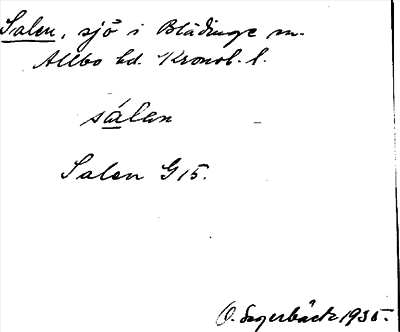 Salen, sjö i Blädinge m.
Allbo hd. Kronob. l.
sálen
Salen G 15.
O. Sagerbäck 1935.